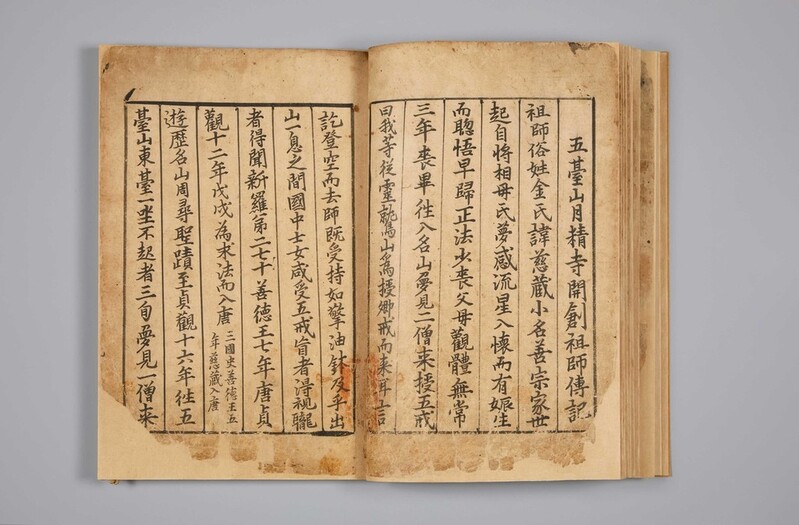 五臺山月精寺開創祖師傳記
祖師俗姓金氏諱慈藏小名善宗家世
起自將相母氏夢感流星入懷而有娠生
而聰悟早歸正法少丧父母觀體無常
三年丧畢徃入名山夢見二僧来授五戒
曰我等從靈鷲山為授卿戒而来耳言
訖登空而去師旣受持如擎油鉢及乎出
山一息之間國中士女咸受五戒盲者得視聾
者得聞新羅第二七十善德王七年唐貞
觀十二年戊戌為求法而入唐
三國史善德王五
年慈藏入唐
遊歷名山周尋聖蹟至貞觀十六年徃五
臺山東臺一坐不起者三旬夢見一僧来